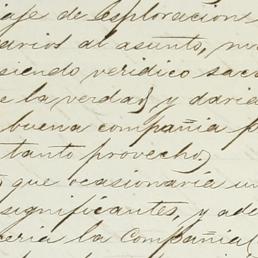 aje de esploracion
arios al asunto,
siendo veridico
e la verdad} y
buena compañia
tanto provecho.)
que ocasionaría
significantes, y
la Compañia(